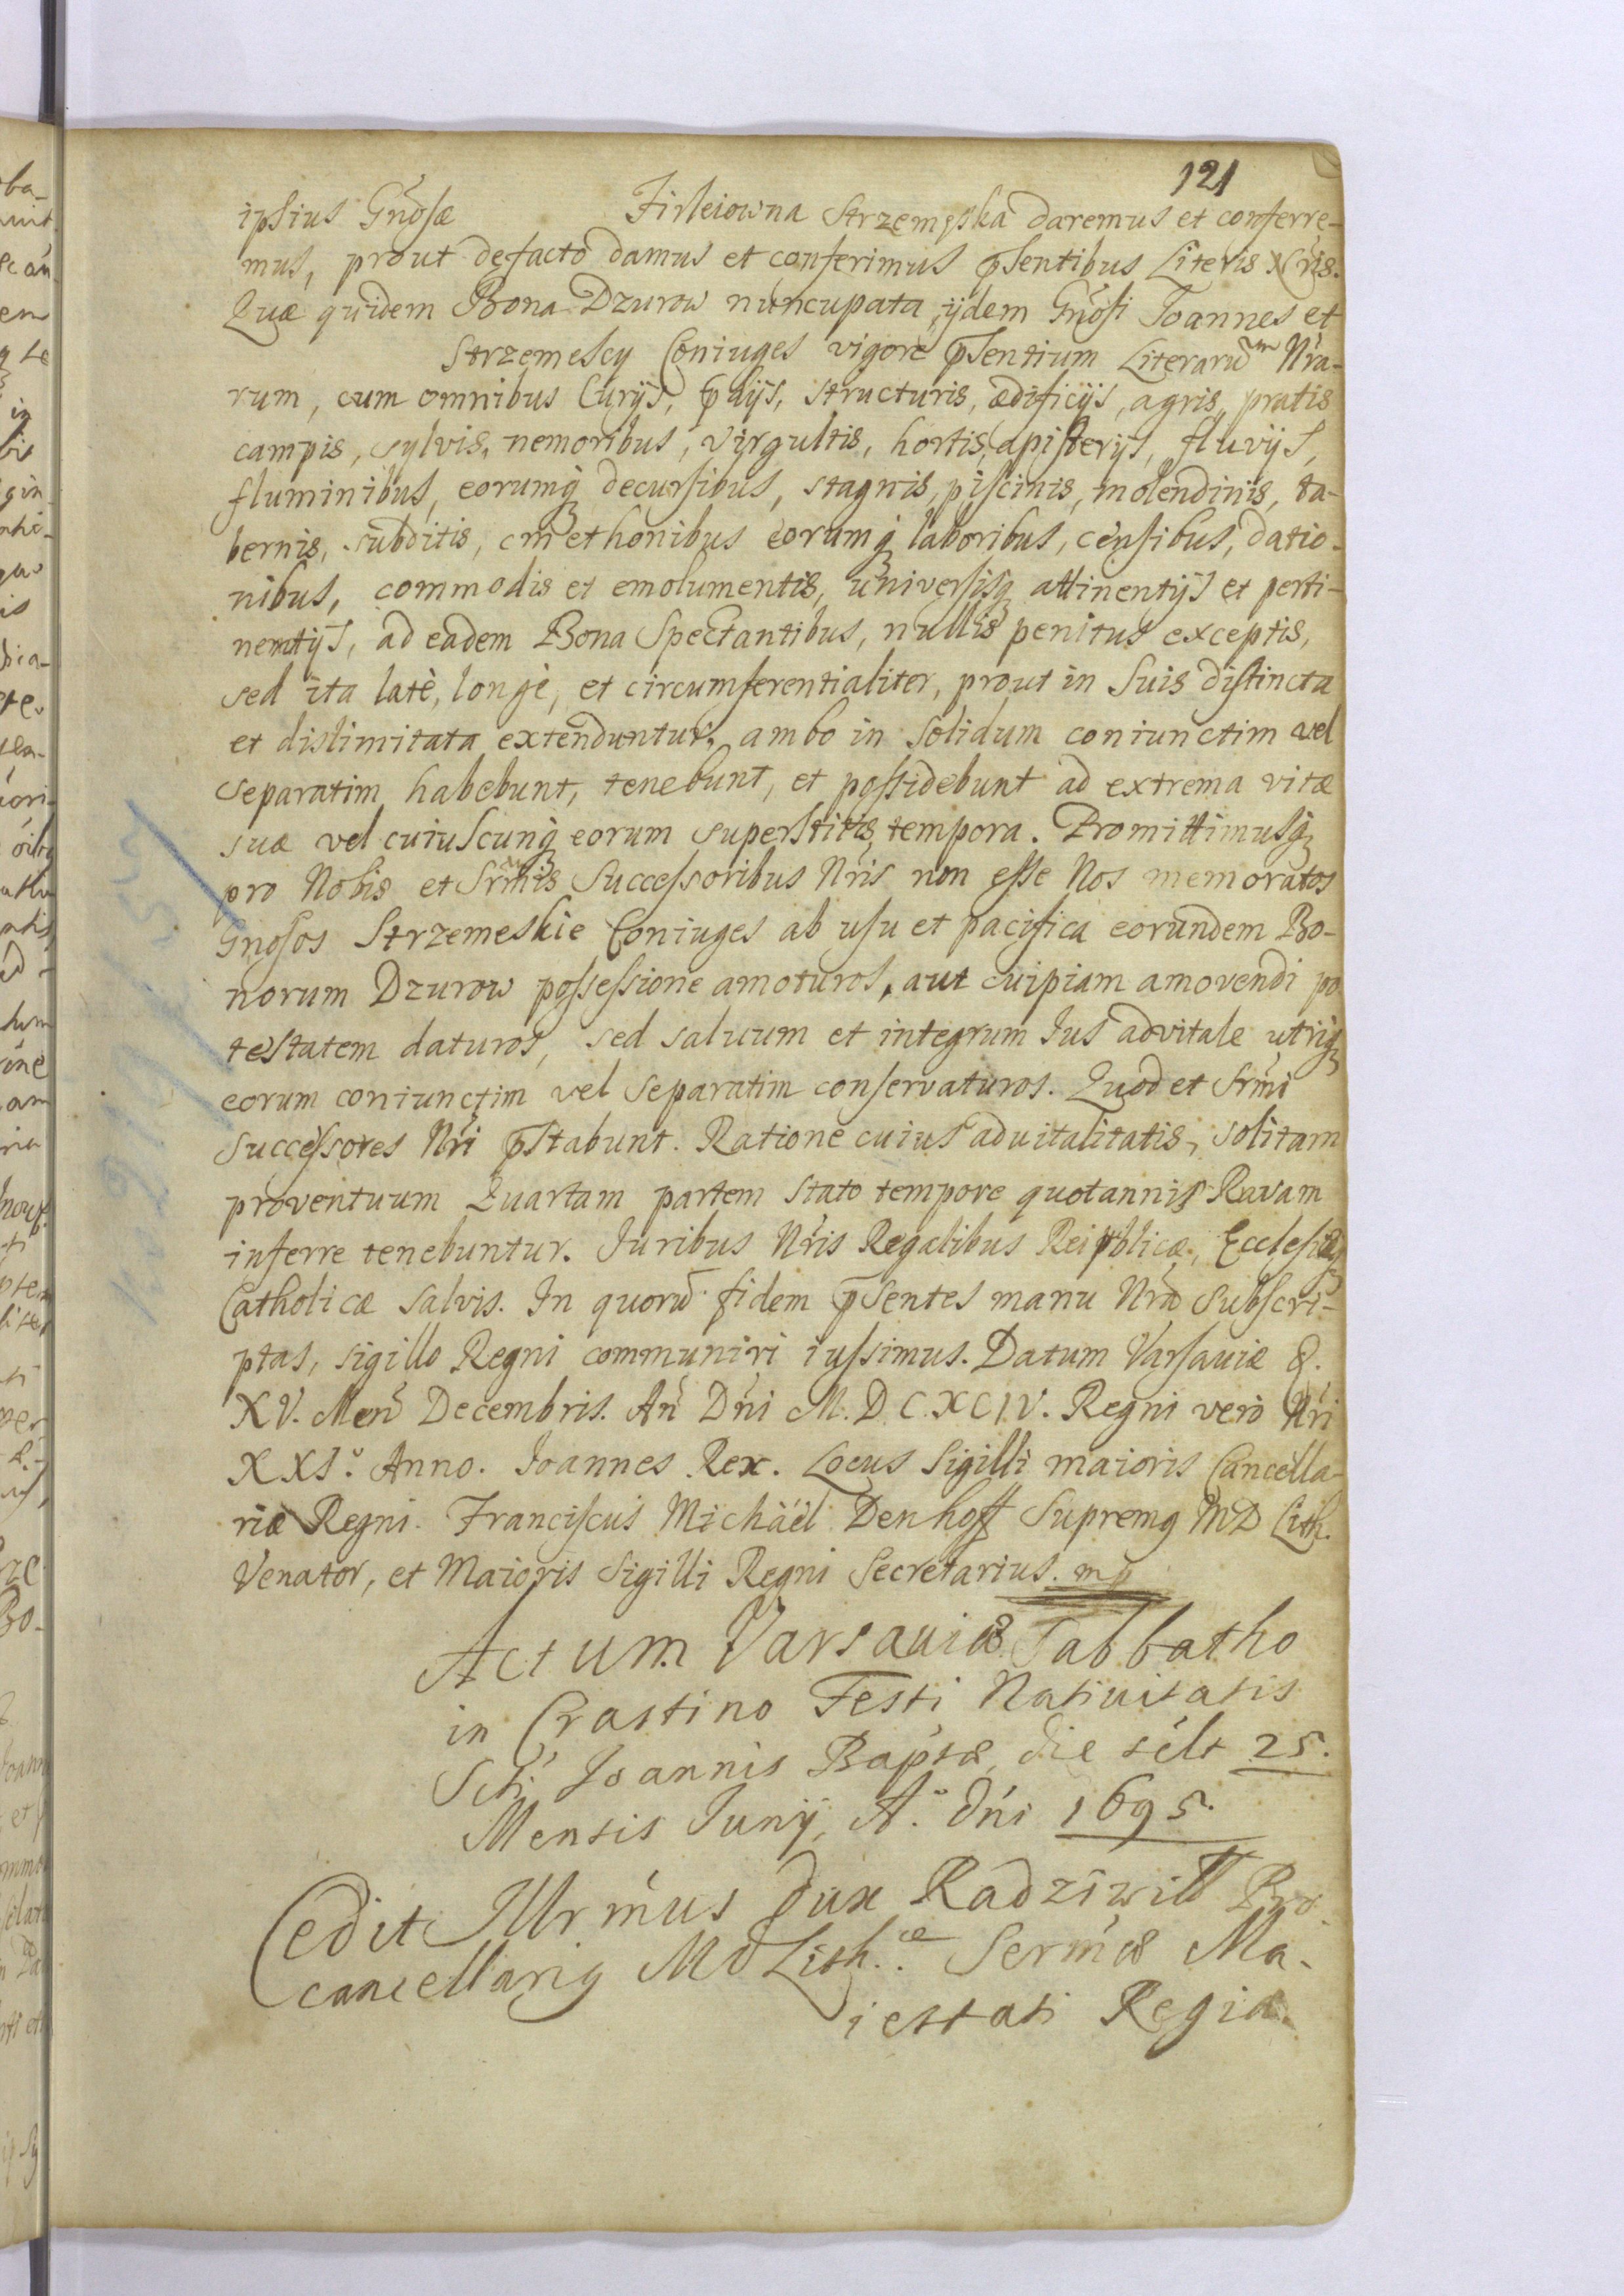 121
ipsius Gnősæ Firleiowna Strzemęska daremus et conferre-
mus, prout defacto damus et conferimus p̄sentibus Literis Nr̃is.
Quæ quidem Bona Dzurow nuncupata, ijdem Gnősi Joannes et
Strzemescy Coniuges vigore p̄sentium Literarũm Nr̃a-
rum, cum omnibus Curijs, p̄dijs, structuris, ædificijs, agris, pratis
campis, sylvis, nemoribus, virgultis, hortis, apisterijs, fluvijs,
fluminibus, eorumq̃ decursibus, stagnis, piscinis, molendinis, ta-
bernis, subditis, cmethonibus eorumq̃ laboribus, censibus, datio-
nibus, commodis et emolumentis, universisq̃ attinentijs et perti-
nentijs, ad eadem Bona Spectantibus, nullis penitus exceptis,
sed ita latè, longè, et circumferentialiter, prout in Suis distincta
et dislimitata extenduntur, ambo in solidum coniunctim vel
separatim habebunt, tenebunt, et possidebunt ad extrema vitæ
suæ vel cuiuscunq̃ eorum superstitis tempora. Promittimusq̃
pro Nobis et Sr̃mis Successoribus Nr̃is non esse Nos memoratos
Gnősos Strzemeskie Coniuges ab usu et pacifica eorundem Bo-
norum Dzurow possessione amoturos, aut cuipiam amovendi po
testatem daturos, sed saluum et integrum Jus advitale utriq̃
eorum coniunctim vel separatim conservaturos. Quod et Sr̃mi
Successores Nr̃i p̄stabunt. Ratione cuius aduitalitatis, solitam
proventuum Quartam partem stato tempore quotannis Ravam
inferre tenebuntur. Juribus Nr̃is Regalibus Reipblicæ, Ecclesiæq̃
Catholicæ salvis. In quorũ fidem p̄sentes manu Nr̃a subscri-
ptas, sigillo Regni communiri iussimus. Datum Varsaviæ D.
XV. Men̄ Decembris. An̄ Dn̄i M.D.C.XCIV. Regni vero Nr̃i
XXI.º Anno. Joannes Rex. Locus Sigilli maioris Cancella-
riæ Regni. Franciscus Michäel Denhoff Supremq MD Lith.
Venator, et Maioris Sigilli Regni Secretarius. mp
Actum Varsaviæ Sabbatho
in Crastino Festi Nativitatis
Scti Joannis Baptæ, die scilt 25.
Mensis Junij, A.º Dn̄i 1695.
Cedit Illrm̃us Dux Radziwill Pro
cancellariq MD Lith.æ Serm̃æ Ma-
iestati Regiæ.